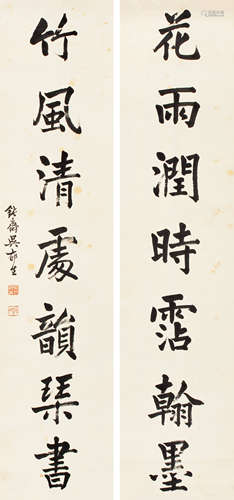 花雨潤時霑翰墨
竹風清處韻琴書
鈍齋吳郁生